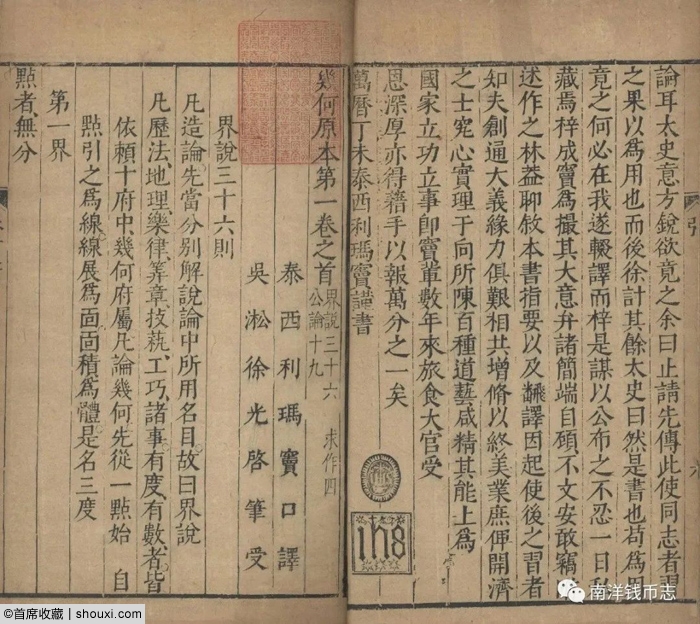 論耳太史意方銳欲竟之余曰止請先傳此使同志者習
之果以爲用也而後徐計其餘太史曰然是書也苟爲用
竟之何必在我遂輟譯而梓是謀以公布之不忍一日私
藏焉梓成竇爲撮其大意弁諸簡端自顧不文安敢竊
述作之林葢聊敘本書指要以及繙譯因起使後之習者
知夫創通大義緣力俱艱相共增修以終美業庶俾開濟
之士究心實理于向所陳百種道藝咸精其能上爲
國家立功立事卽竇輩數年來旅食大官受
恩深厚亦得藉手以報萬分之一矣
萬曆丁未泰西利瑪竇謹書
IHS
幾何原本第一卷之首 界說三十六 求作四
公論十九
泰西利瑪竇口譯
吳淞徐光啓筆受
界說三十六則
凡造論先當分別解說論中所用名目故曰界說
凡歷法地理樂律筭章技藝工巧諸事有度有數者皆
依賴十府中幾何府屬凡論幾何先從一點始自
點引之爲線線展爲面面積爲體是名三度
第一界
點者無分
引
©首席收藏 | shouxi.com
南洋钱币志